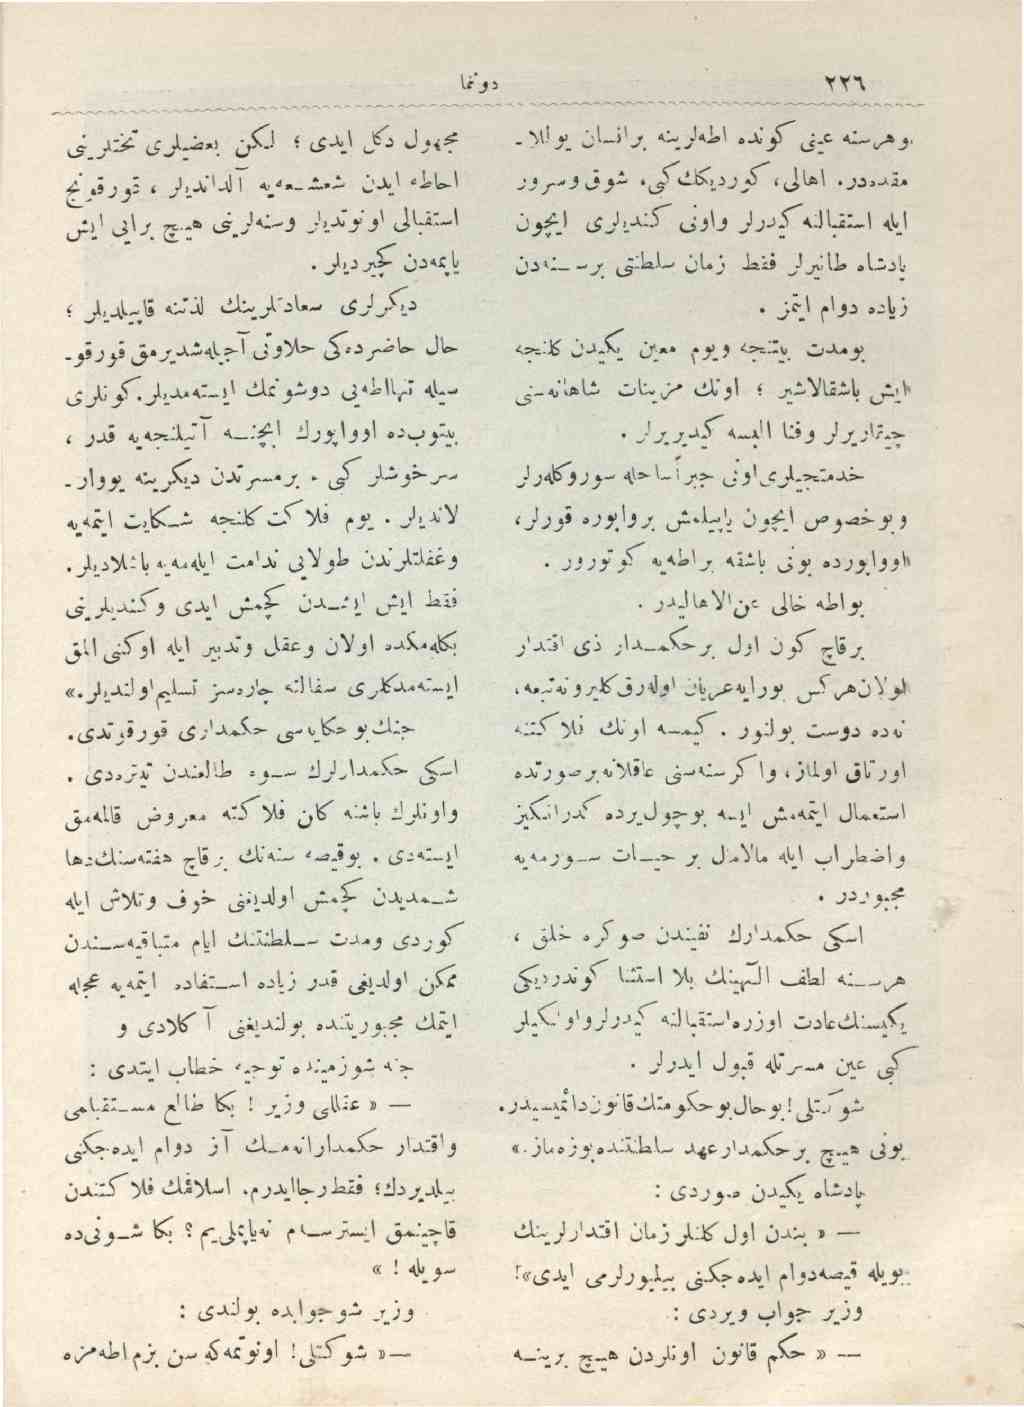 ٢٢٦
دونما
وهرسنه عینی کونده اطه‌لرینه برانسان یوللا ـ
مقده‌در. اهالی، کوردیکك کبی. شوق وسرور
ایله استقبالنه کیدرلر واونی کندیلری ایچون
پادشاه طانیرلر فقط زمان سلطنتی بر سنه‌دن
زیاده دوام ایتمز .
بومدت بیتنجه ویوم معین یکیدن کلنجه
ایش باشقالاشیر ؛ اونك مزینات شاهانه‌سنی
چیقاریرلر وفنا البسه کیدیریرلر .
خدمتجیلری اونی جبراً ساحله سوروکله‌رلر
وبو خصوص ایچون یاپیلمش بر واپوره قورلر،
اوواپورده بونی باشقه بر اطه‌یه کوتورور .
بواطه خالی عن‌الاهالیدر .
برقاچ کون اول بر حکمدار ذی اقتدار
اولان هرکس بورایه عریان اوله‌رق کلیر و نه تبعه،
نه‌ده دوست بولنور . کیمسه اونك فلاکتنه
اورتاق اولماز، واکر سنه‌سنی عاقلانه بر صورتده
استعمال ایتمه‌مش ایسه بو چول یرده کدر انکیز
واضطراب ایله مالامال بر حیات سورمه‌یه
مجبوردر .
اسکی حکمدارك نفیندن صوکره خلق ،
هر سنه لطف الٓهینك بلا استثنا کوندردیکی
یکیسنك عادت اوزره استقبالنه کیدرلر واولکیلر
کبی عین مسرتله قبول ایدرلر .
شوکتلی! بوحال بوحکومتك قانون دائمیسیدر.
بونی هیچ بر حکمدار عهد سلطنتنده بوزه‌ماز.»
پادشاه یکیدن صوردی :
— « بندن اول کلنلر زمان اقتدارلرینك
بویله قیصه دوام ایده‌جکنی بیلیورلرمی ایدی»!
وزیر جواب ویردی :
— « حکم قانون اونلردن هیچ برینه
مجهول دکل ایدی ؛ لیکن بعضیلری تختلرینی
احاطه ایدن شعشعه‌یه آلداندیلر ، قورقونج
استقبالی اونوتدیلر وسنه‌لرینی هیچ برایی ایش
یاپمه‌دن کچیردیلر .
دیکرلری سعادتلرینك لذتنه قاپیلدیلر ؛
حال حاضرده‌کی حلاوتی آجیلاشدیرمق قورقو ـ
سیله تنها اطه‌یی دوشونمك ایسته‌مدیلر. کونلری
بیتوب‌ده اوواپورك ایچنه آتیلنجه‌یه قدر ،
سرخوشلر کبی ، بر مسرتدن دیکرینه یووار ـ
لاندیلر . یوم فلاکت کلنجه شکایت ایتمه‌یه
وغفلتلرندن طولایی ندامت ایله‌مه‌یه باشلادیلر.
فقط ایش ایشدن کچمش ایدی وکندیلرینی
بکله‌مکده اولان وعقل وتدبیر ایله اوکنی المق
ایسته‌مدکلری سفالته چاره‌سز تسلیم اولندیلر.»
جنك بو حکایه‌سی حکمداری قورقوتدی.
اسکی حکمدارلرك سوء طالعندن تیتره‌دی .
واونلرك باشنه کلن فلاکته معروض قالمه‌مق
ایسته‌دی . بو قیصه سنه‌نك برقاچ هفته‌سنك دها
شمدیدن کچمش اولدیغنی خوف وتلاش ایله
کوردی ومدت سلطنتنك ایام متباقیه‌سندن
ممکن اولدیغی قدر زیاده استفاده ایتمه‌یه عجله
ایتمك مجبوریتنده بولندیغنی آکلادی و
جنه شو زمینده توجیه خطاب ایتدی :
— « عقللی وزیر ! بکا طالع مستقبلمی
واقتدار حکمدارانه‌مك آز دوام ایده‌جکنی
بیلدیردك؛ فقط رجا ایدرم. اسلافمك فلاکتندن
قاچینمق ایسترسه‌م نه یاپملی‌یم؟ بکا شونی ده
سویله ! »
وزیر شو جوابده بولندی :
— « شوکتلی! اونوتمه‌که سن بزم اطه‌مزه